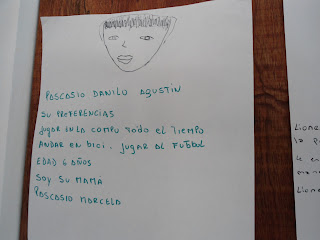 PASCASIO DANILO AGUSTÍN
SU PREFERENCIAS
JUGAR EN LA COMPU TODO EL TIEMPO
ANDAR EN BICI. JUGAR AL FUTBOL
EDAD 6 AÑOS
SOY SU MAMA
PASCASIO MARCELA
Liona